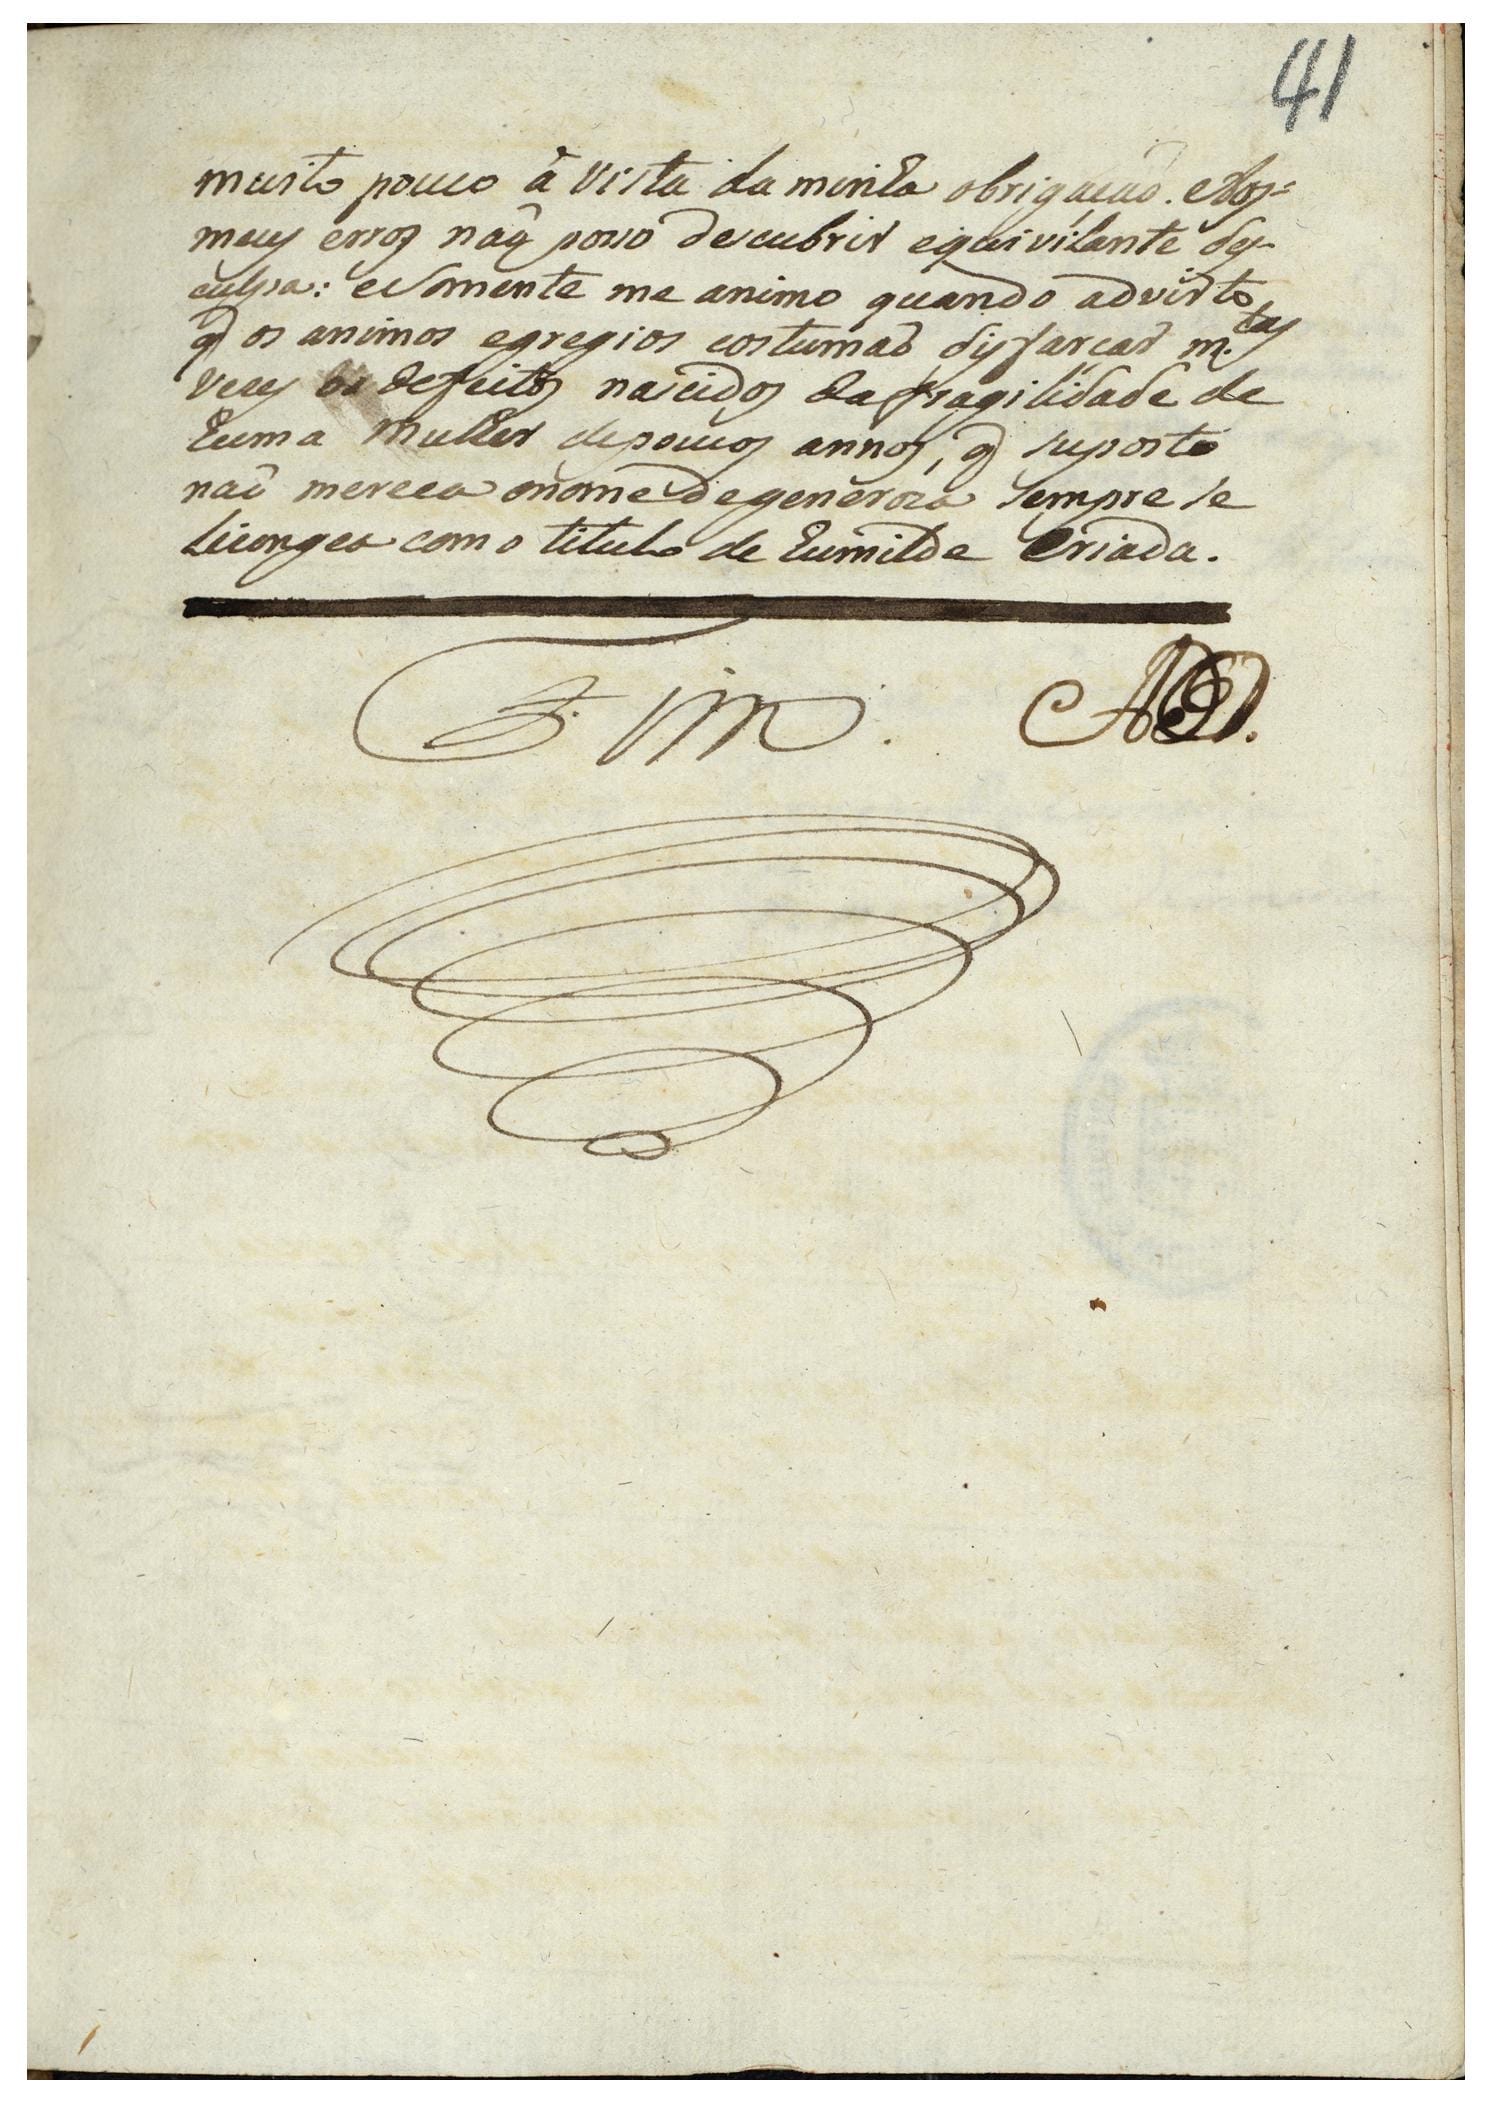 41
muito pouco á vista da minha obrigacaõ. e Aos=
meus erros naõ posso descubrir equivilante des-
culpa: e somente me animo quando advirto
q̃ os animos egregios costumaõ disfarcar m.tas
veces os defeitos nascidos da fragilidade de
huma Mulher de poucos annos, q̃ suposto
naõ mereca o nome de generoza sempre se
licongea com o titulo de humilde Criada.
Fim.